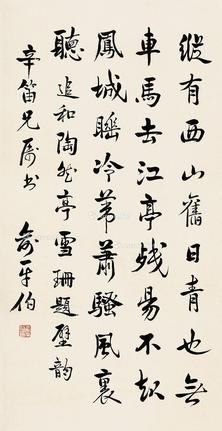 纵有西山旧日青也無
車馬去江亭残陽不起
鳳城睡冷苇萧骚風裏
聽 追和陶然亭雪珊題壁韵
辛笛兄属书 俞平伯